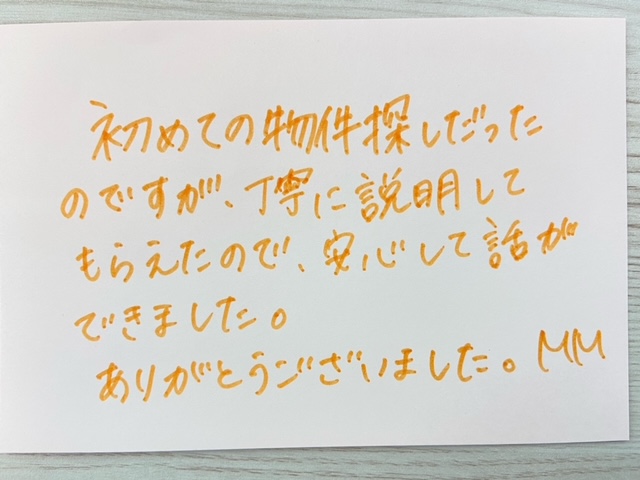 初めての物件探しだった
のですが、丁寧に説明して
もらえたので、安心して話が
できました。
ありがとうございました。MM